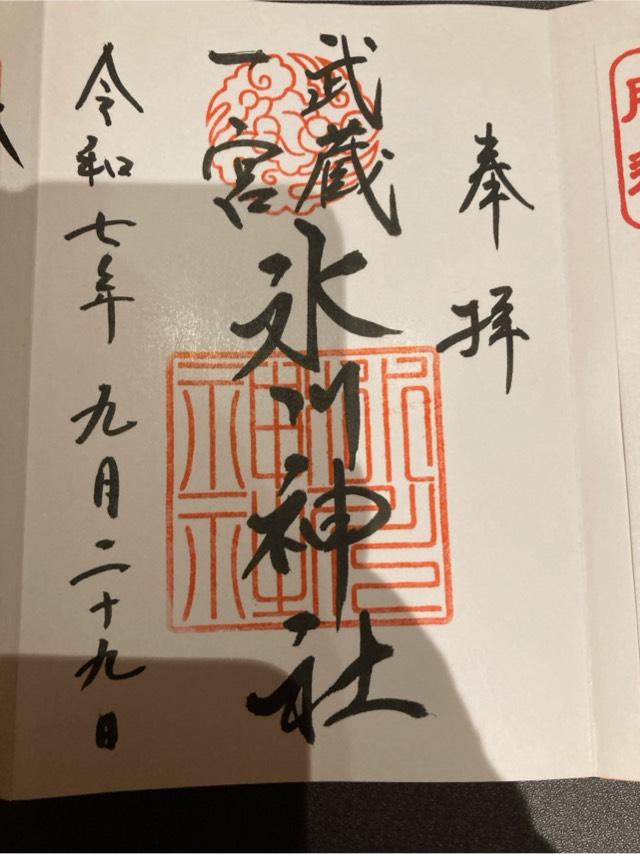 奉拝
武蔵
一宮
氷川神社
令和七年九月二十九日